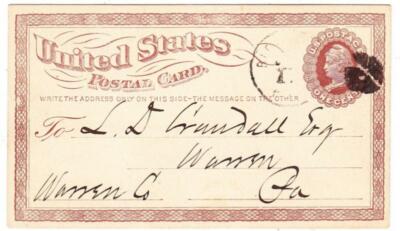 United States
Postal Card.
WRITE THE ADDRESS ONLY ON THIS SIDE-THE MESSAGE ON THE OTHER
U.S. POSTAGE
ONE CENT
To L. D. Crandall Esq
Warren
Warren Co Pa